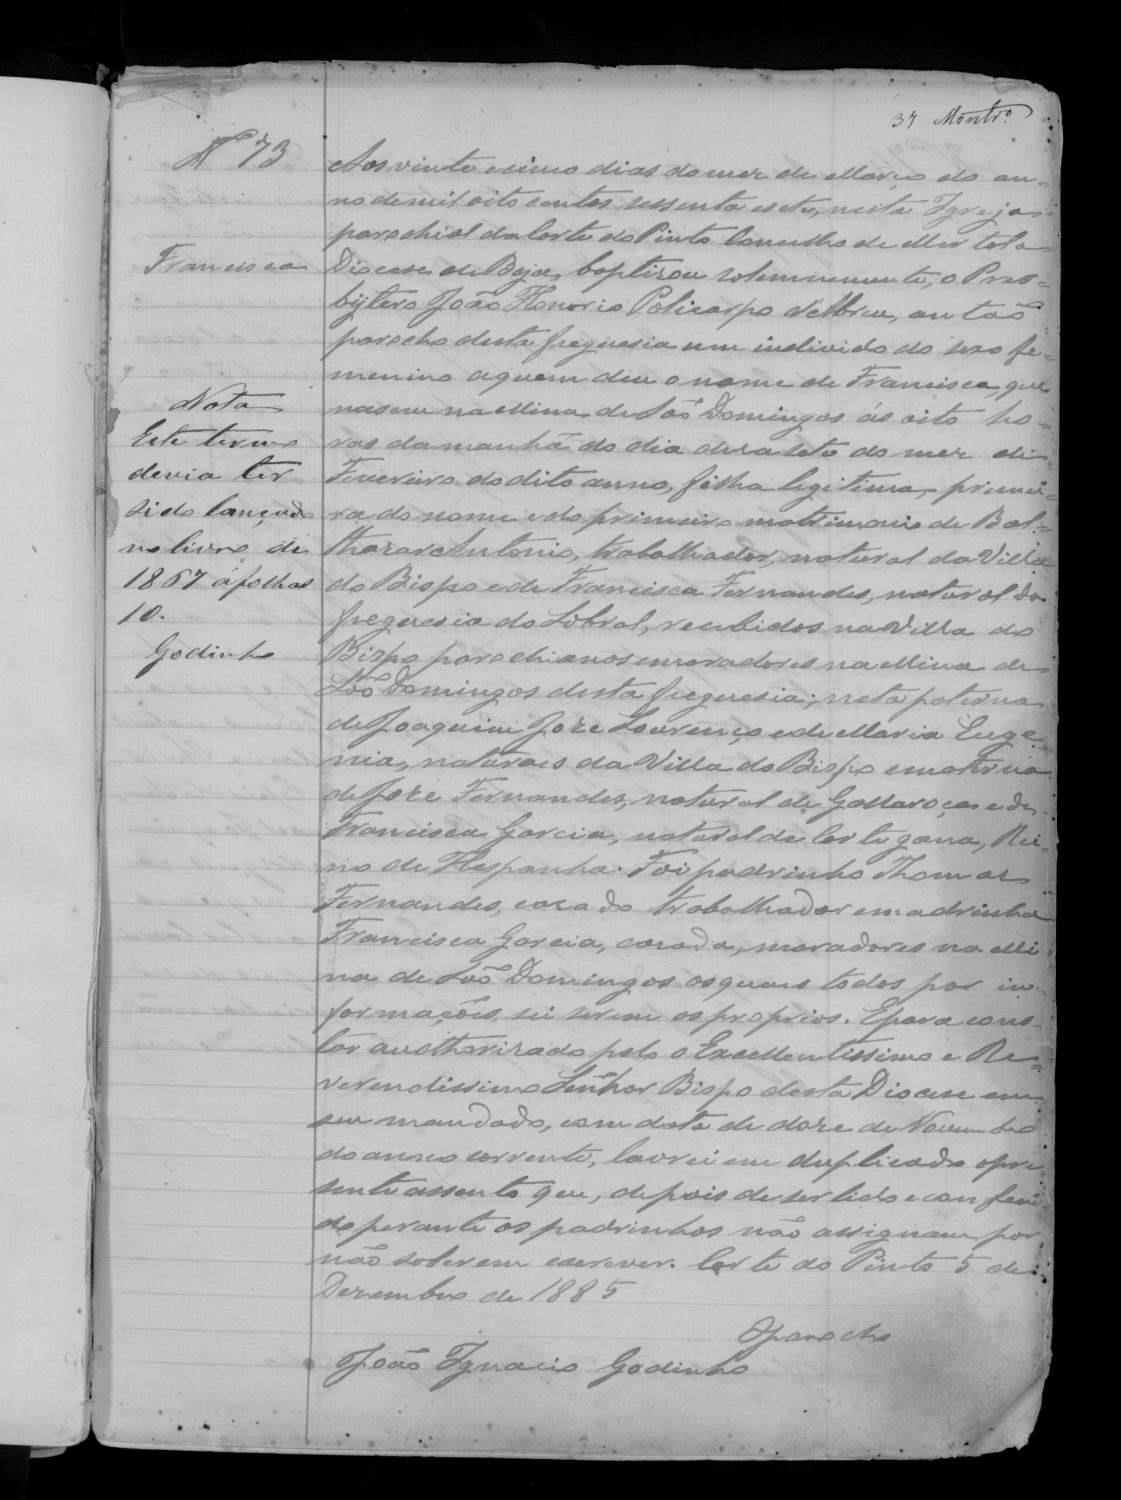 37 Montrº
Nº 73
Francisca
Nota
Este termo
devia ter
sido lançado
no livro de
1867 á folhas
10.
Godinho
Aos vinte e cinco dias do mez de Março do an-
no de mil oito centos sessenta e sete, nesta Igreja
parochial da Corte do Pinto Concelho de Mertola
Diocese de Beja, baptizou solemnemente, o Pres-
bytero João Honorio Policarpo d'Abreu, então
parocho desta freguesia um individo do sexo fe-
menino a quem deu o nome de Francisca, que
nasceu na Mina de São Domingos ás oito ho-
ras da manhã do dia deza sete do mez de
Fevereiro do dito anno, filha legitima, primei-
ra do nome e do primeiro matrimonio de Bal-
thazar Antonio, trabalhador, natural da Villa
do Bispo e de Francisca Fernandes, natural da
freguesia do Sobral, recebidos na Villa do
Bispo parochianos e moradores na Mina de
São Domingos desta freguesia; neta paterna
de Joaquim Joze Lourenço e de Maria Euge-
nia, naturaes da Villa do Bispo e materna
de Joze Fernandes, natural de Gallaroças e de
Francisca Garcia, natural de Cortegana, Rei-
no de Hespanha. Foi padrinho Thomas
Fernandes, casado trabalhador e madrinha
Francisca Garcia, casada, moradores na Mi-
na de São Domingos os quaes todos por in-
formações, sei serem os proprios. E para cons-
tar authorizado pelo o Excellentissimo e Re-
verendissimo Senhor Bispo desta Diocese em
seu mandado, com data de doze de Novembro
do anno corrente, lavrei em duplicado o pre-
sente assento que, depois de ser lido e conferi-
do perante os padrinhos não assignam por
não saberem escrever. Corte do Pinto 5 de
Dezembro de 1885
O parocho
João Ignacio Godinho